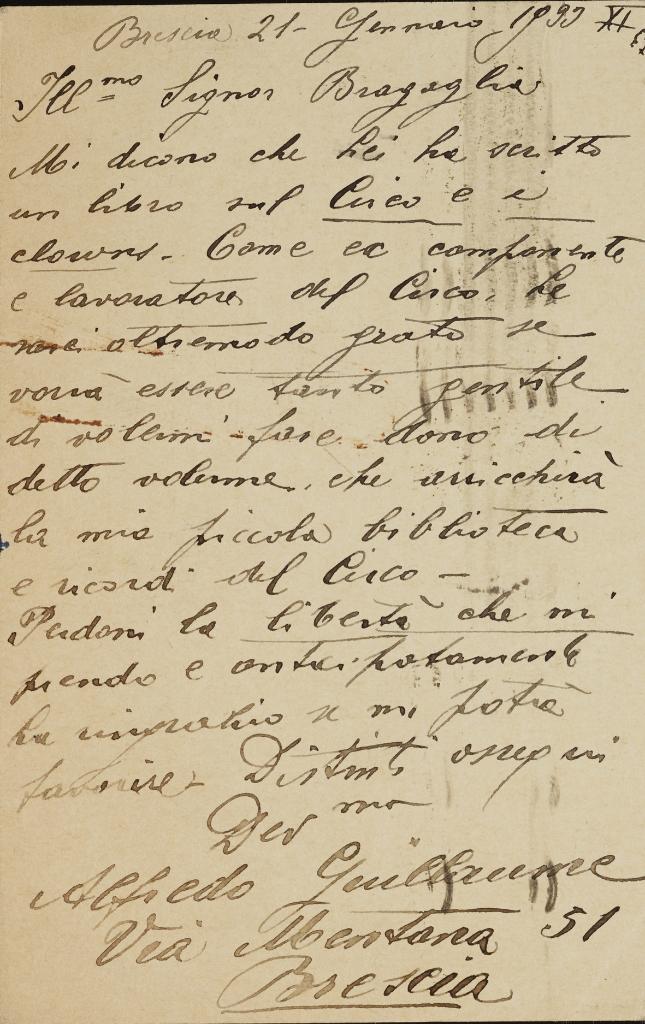 Brescia 21 - Gennaio 1933 XI
Ill.mo Signor Bragaglia
Mi dicono che Lei ha scritto
un libro sul Circo e i
clowns. Come ex componente
e lavoratore del Circo. Le
sarei oltremodo grato se
vorrà essere tanto gentile
di volermi fare dono di
detto volume, che arricchirà
la mia piccola biblioteca
e ricordi del Circo -
Perdoni la libertà che mi
prendo e anticipatamente
La ringrazio se mi potrà
favorire - Distinti ossequi
Dev mo
Alfredo Guillaume
Via Mentana 51
Brescia